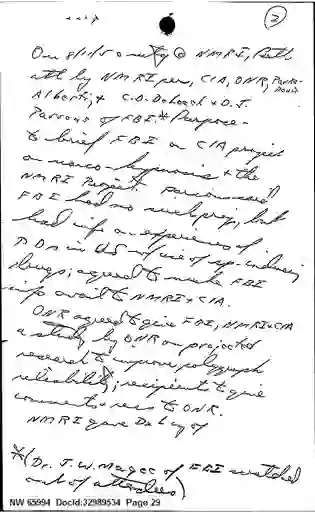 ②
On 8/1/5 a mtg @ NMRI, Beth
att by NMRI per, CIA, ONR,
Alberti, + C.D. DeLoach + D.J.
Parsons of FBI.* Purpose -
to brief FBI on CIA project
on narco-hypnosis + the
NMRI Project. Parsons said
FBI had no such prog, but
had info on experiences of
PDs in US of use of sp-inducing
drugs; agreed to make FBI
info avail to NMRI + CIA.
ONR agreed to give FBI, NMRI + CIA
a study by ONR on projected
research to improve polygraph
reliability; recipients to give
comments + recs to ONR.
NMRI gave Del cy of
*(Dr. J. W. Magee of FBI
out of attendees)
NW 65994 DocId:32989534 Page 29